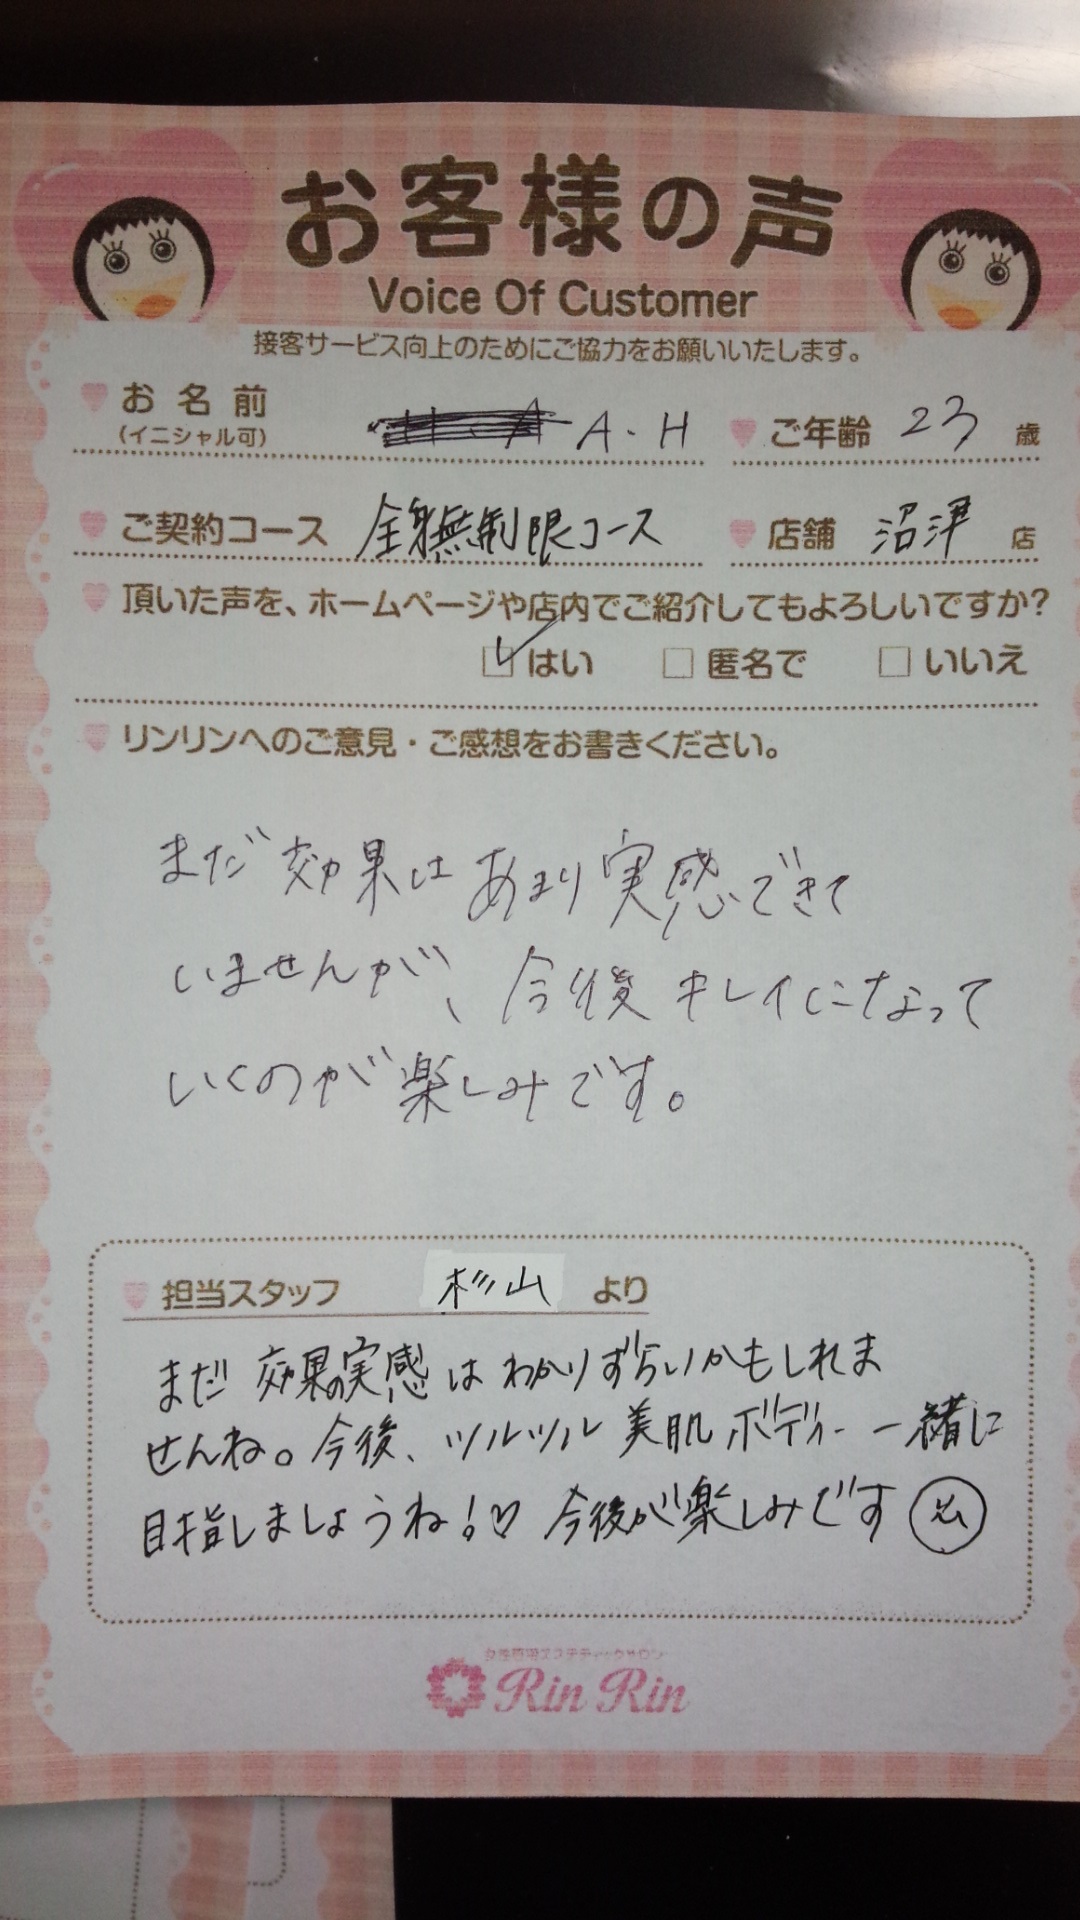 お客様の声
Voice Of Customer
接客サービス向上のためにご協力をお願いいたします。
お名前
(イニシャル可)
A・H
ご年齢 23 歳
ご契約コース 全身無制限コース
店舗 沼津 店
頂いた声を、ホームページや店内でご紹介してもよろしいですか?
はい 匿名で いいえ
リンリンへのご意見・ご感想をお書きください。
まだ効果はあまり実感できて
いませんが、今後キレイになって
いくのが楽しみです。
担当スタッフ 杉山 より
まだ効果の実感はわかりずらいかもしれま
せんね。今後、ツルツル美肌ボディー一緒に
目指しましょうね!♡ 今後が楽しみです
女性専用エステティックサロン
Rin Rin